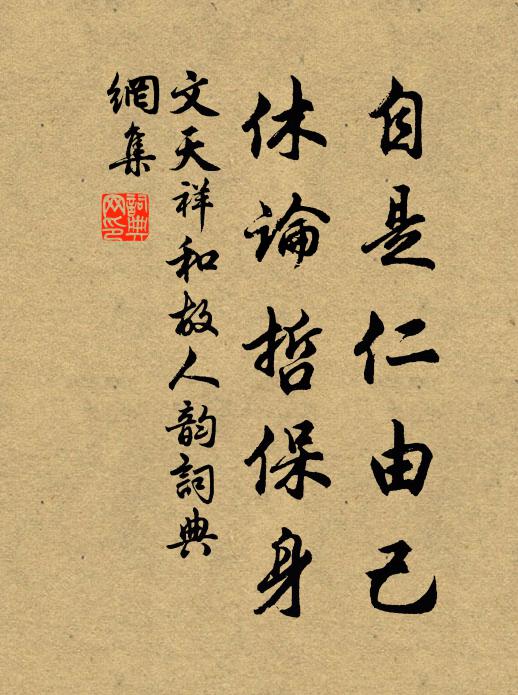 自是仁由己
休論哲保身
文天祥和故人韵詞典
網集
詞典
网印